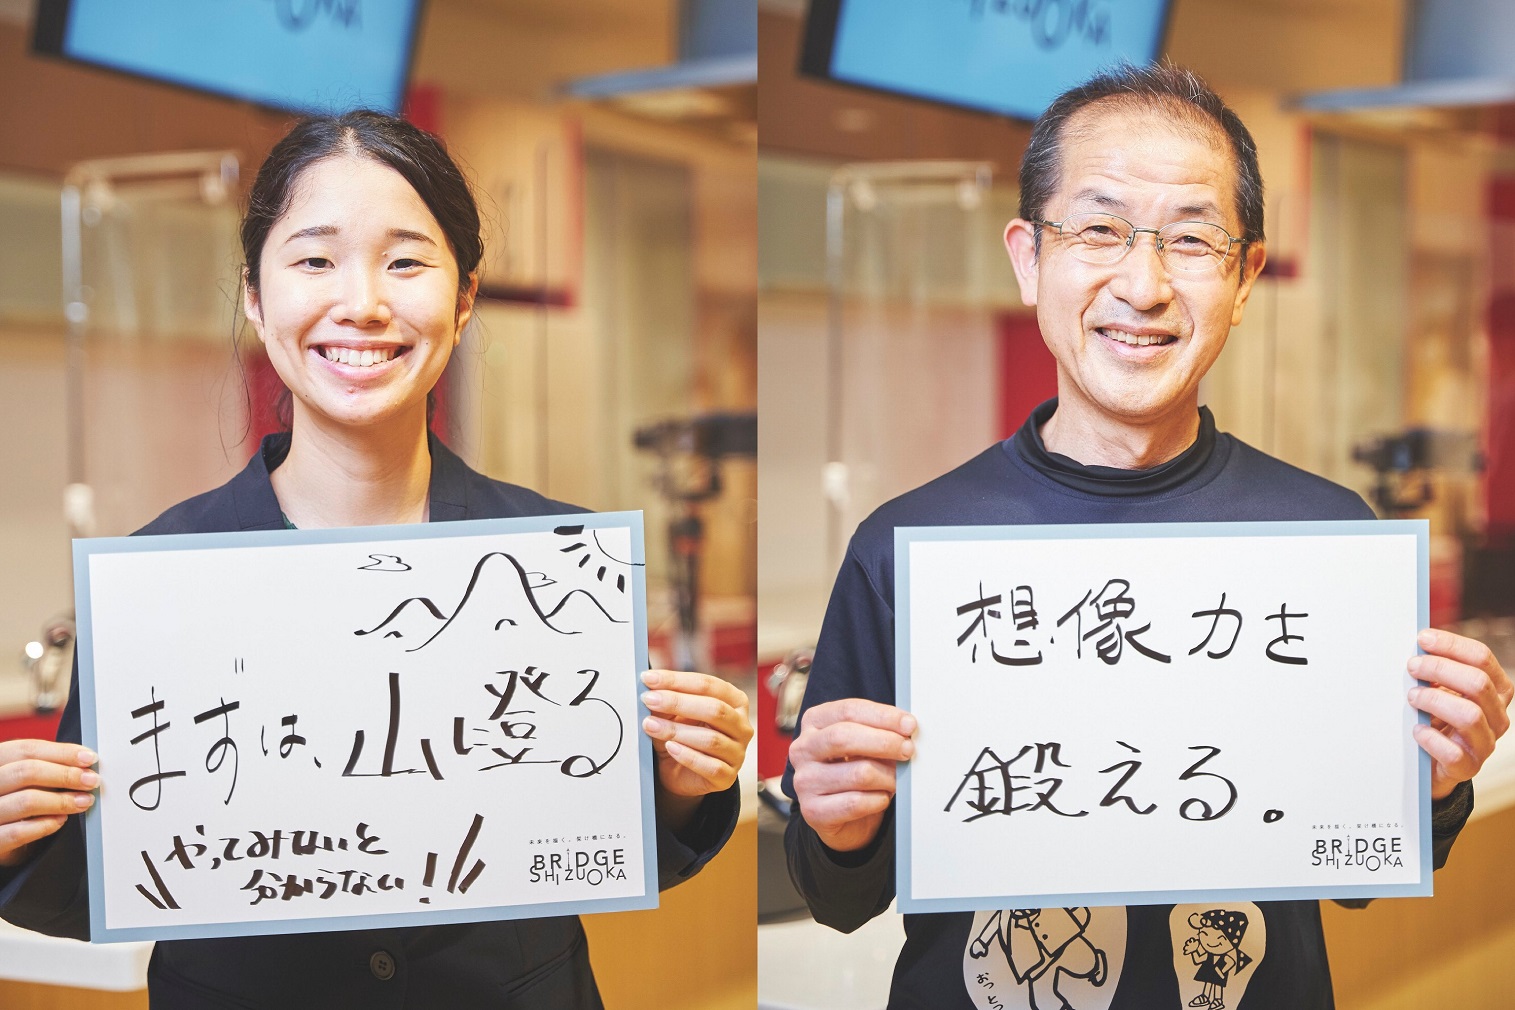 まずは、山に登る
やってみないと
分からない!
未来を描く。架け橋になる。
BRIDGE
SHIZUOKA
想像力を
鍛える。
未来を描く。架け橋になる。
BRIDGE
SHIZUOKA
おっとっ